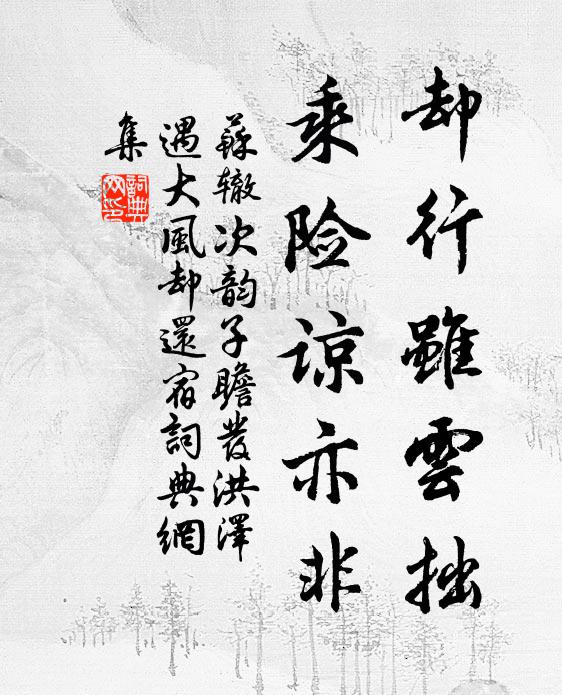 却行雖雲拙
乘险谅亦非
蘇辙次韵子瞻發洪澤
遇大風却還宿詞典網
集
詞典
网印